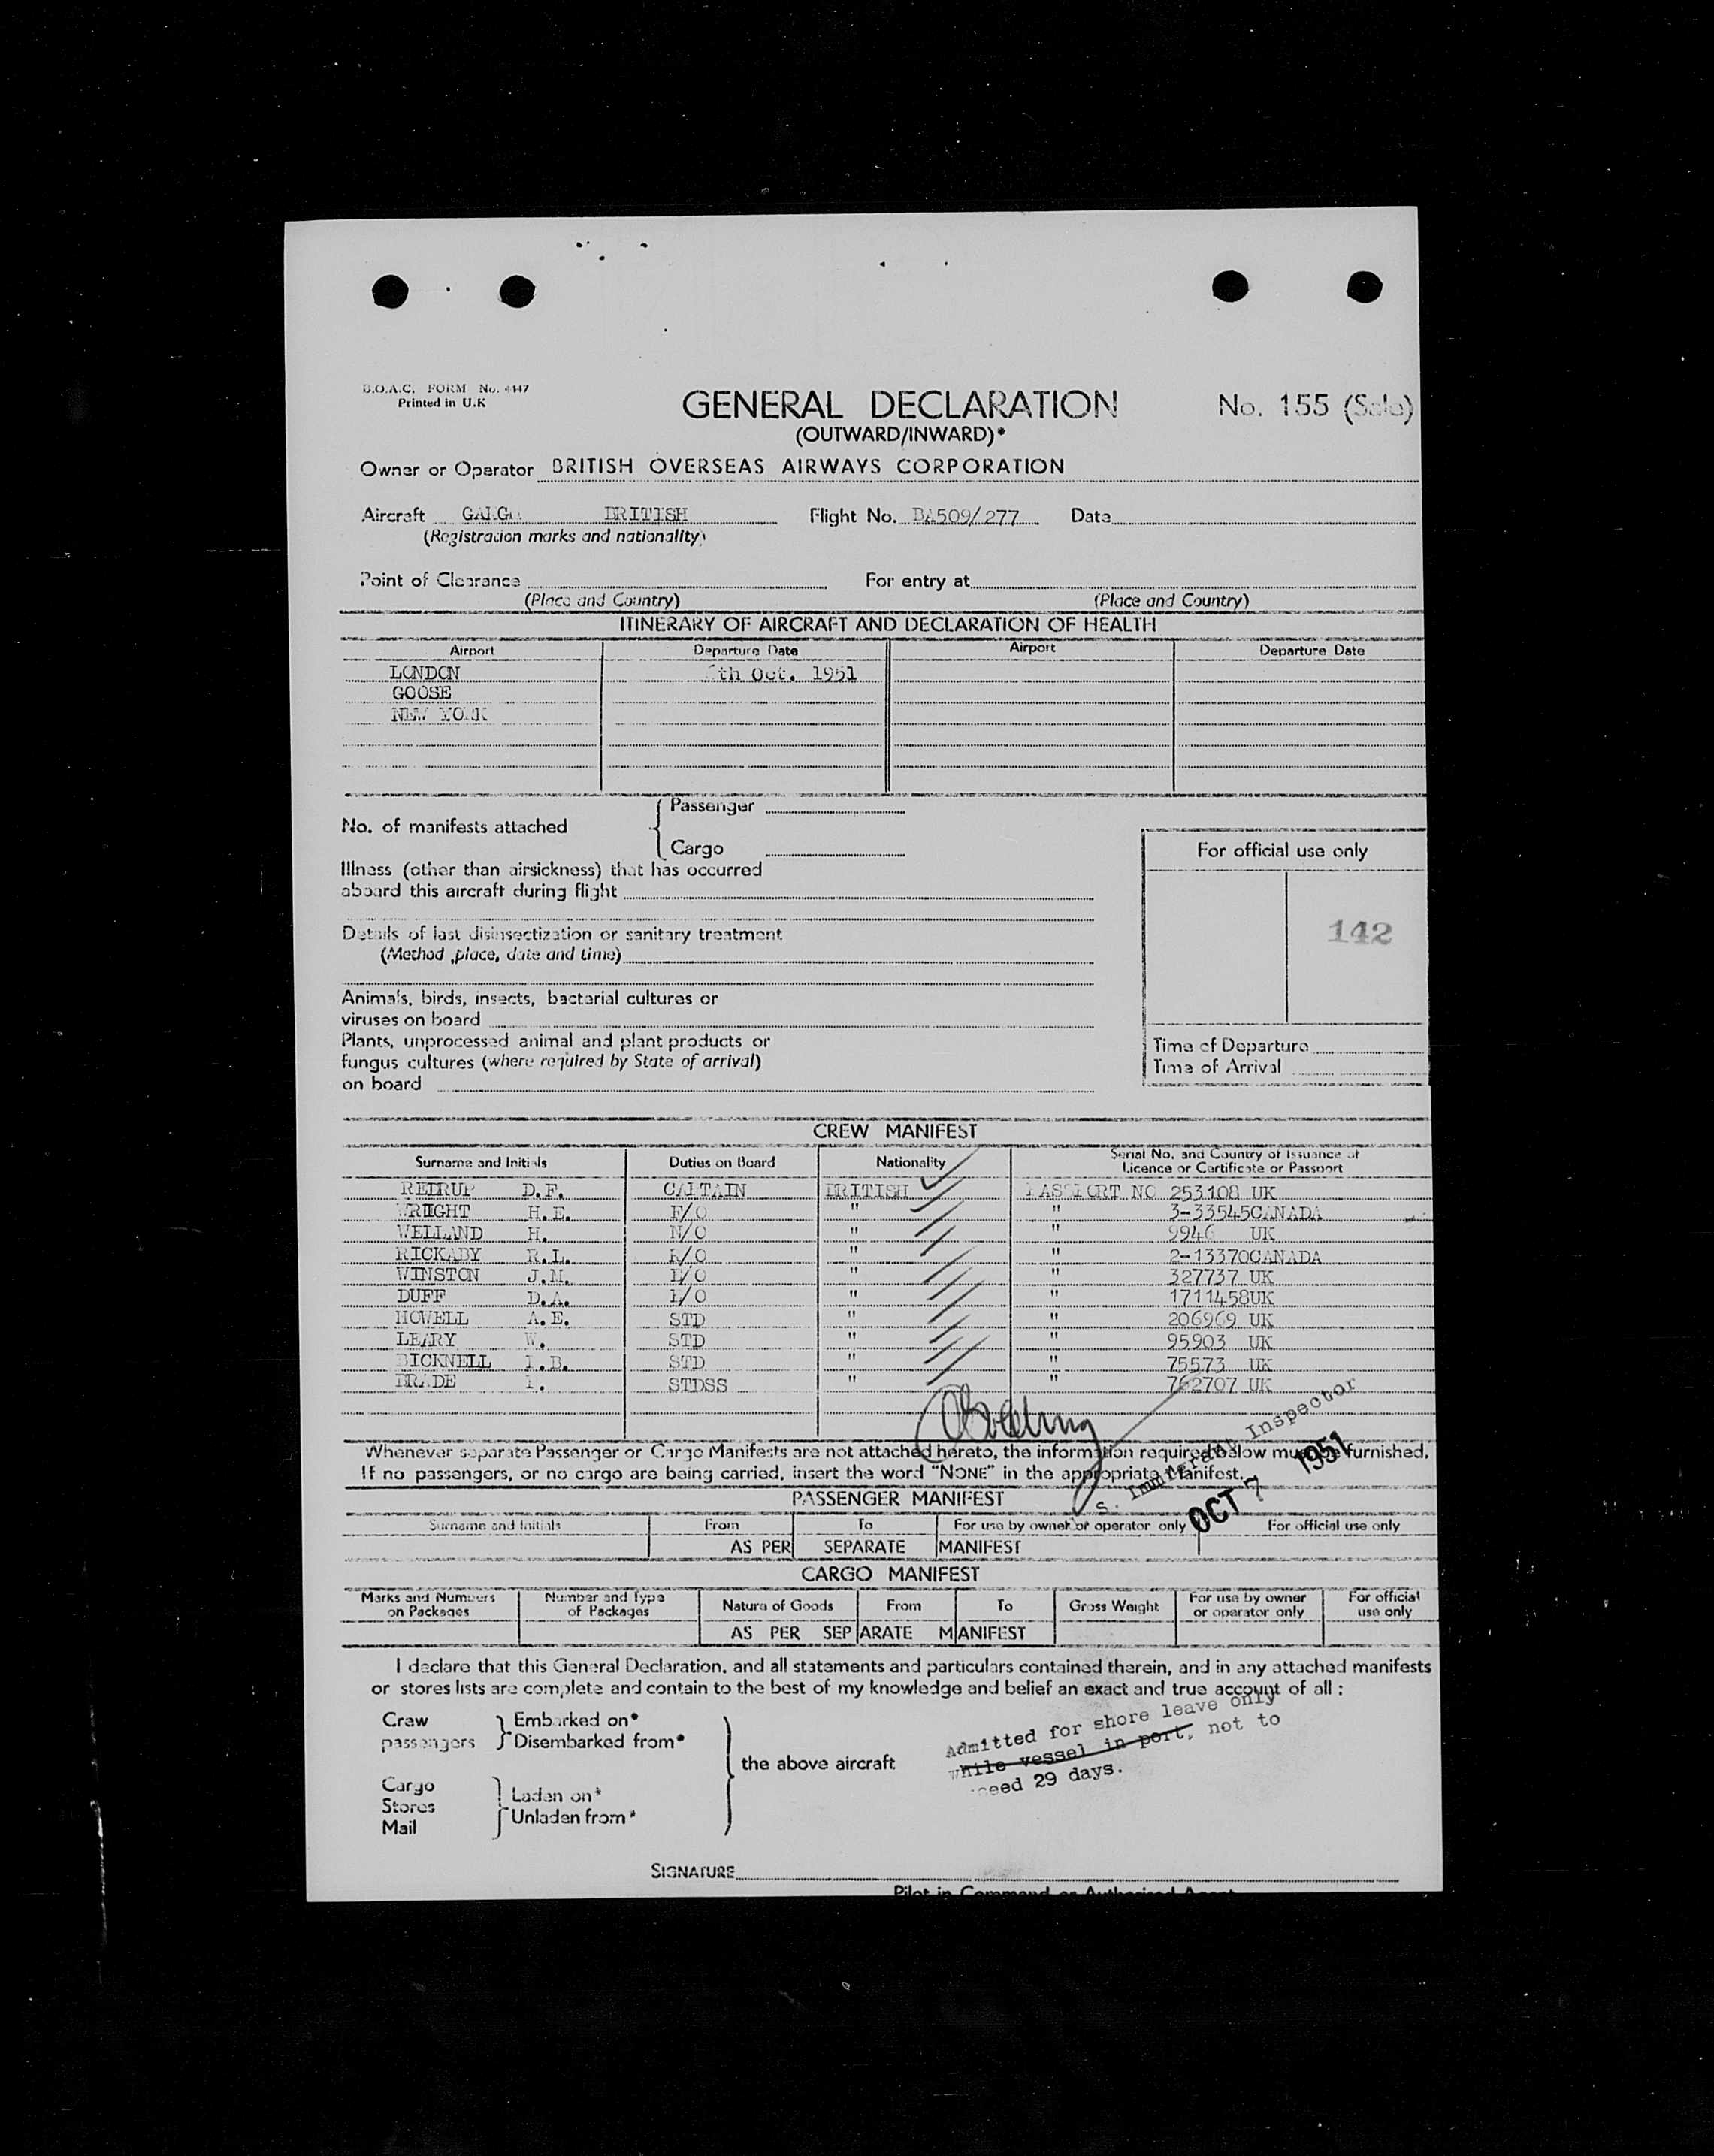 B.O.A.C. FORM No. 4447
Printed in U.K
GENERAL DECLARATION No. 155 (Sale)
(OUTWARD/INWARD)*
Owner or Operator BRITISH OVERSEAS AIRWAYS CORPORATION
Aircraft BRITISH Flight No. BA509/277 Date
(Registration marks and nationality)
Point of Clearance For entry at
(Place and Country) (Place and Country)
ITINERARY OF AIRCRAFT AND DECLARATION OF HEALTH
Airport Departure Date Airport Departure Date
LONDON th Oct. 1951
GOOSE
NEW YORK
No. of manifests attached { Passenger
Cargo
For official use only
Illness (other than airsickness) that has occurred
aboard this aircraft during flight
142
Details of last disinsectization or sanitary treatment
(Method ,place, date and time)
Animals, birds, insects, bacterial cultures or
viruses on board
Plants, unprocessed animal and plant products or
fungus cultures (where required by State of arrival)
on board
Time of Departure
Time of Arrival
CREW MANIFEST
Surname and Initials Duties on Board Nationality Serial No. and Country of Issuance of Licence or Certificate or Passport
REIRUP D.F. CAPTAIN BRITISH PASSPORT NO 253108 UK
WRIIGHT H.E. F/O " " 3-33545CANADA
WELLAND H. N/O " " 9946 UK
RICKABY R.L. R/O " " 2-13370CANADA
WINSTON J.M. E/O " " 327737 UK
DUFF D.A. E/O " " 1711458UK
HOWELL A.E. STD " " 206969 UK
LEARY W. STD " " 95903 UK
BICKNELL STD " " 75573 UK
BRADE STDSS " " 762707 UK
Whenever separate Passenger or Cargo Manifests are not attached hereto, the information required below must be furnished.
If no passengers, or no cargo are being carried, insert the word "NONE" in the appropriate Manifest.
S. Immigrant Inspector
OCT 7 1951
PASSENGER MANIFEST
Surname and Initials From To For use by owner or operator only For official use only
AS PER SEPARATE MANIFEST
CARGO MANIFEST
Marks and Numbers on Packages Number and Type of Packages Nature of Goods From To Gross Weight For use by owner or operator only For official use only
AS PER SEPARATE MANIFEST
I declare that this General Declaration, and all statements and particulars contained therein, and in any attached manifests
or stores lists are complete and contain to the best of my knowledge and belief an exact and true account of all :
Crew Embarked on*
passengers Disembarked from*
the above aircraft
Cargo Laden on*
Stores Unladen from*
Mail
Admitted for shore leave only
while vessel in port, not to
ceed 29 days.
SIGNATURE
Pilot in Command or Authorised Agent